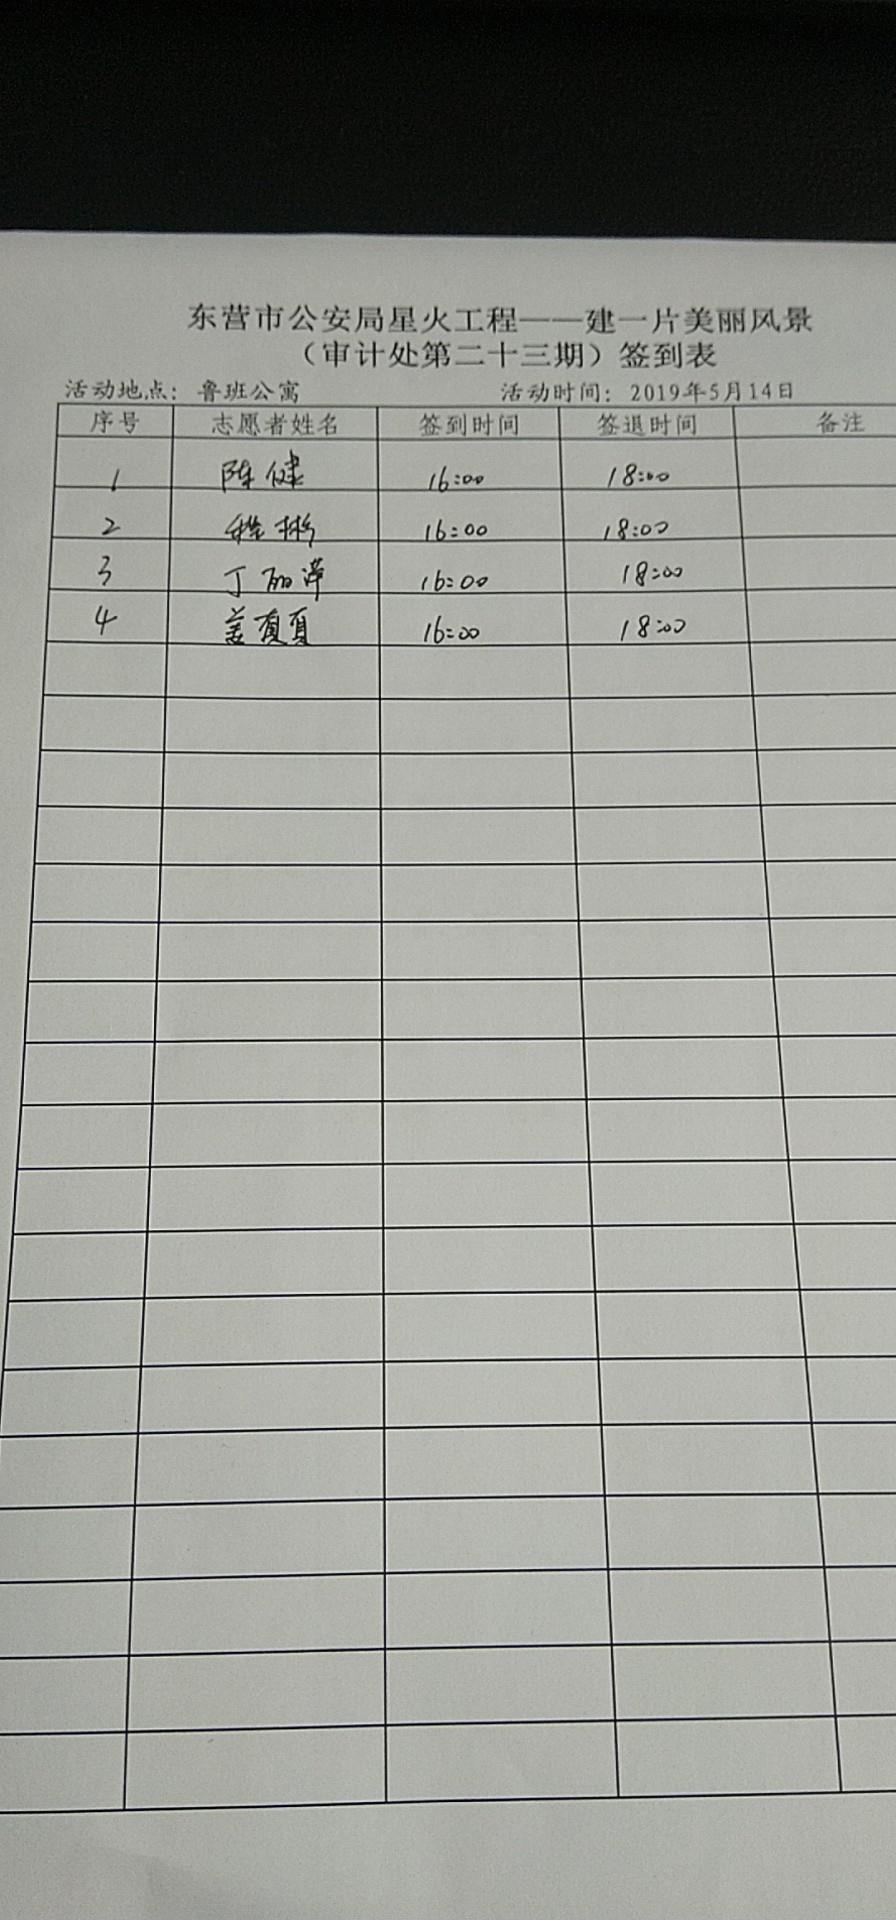 东营市公安局星火工程——建一片美丽风景
（审计处第二十三期）签到表
活动地点：鲁班公寓 活动时间：2019年5月14日
序号 志愿者姓名 签到时间 签退时间 备注
1 陈健 16:00 18:00
2 程彬 16:00 18:00
3 丁丽萍 16:00 18:00
4 盖夏夏 16:00 18:00